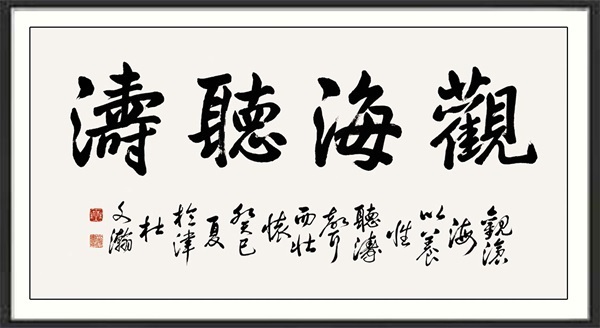 觀海聽濤
觀滄
海
以養
性
聽濤
聲
而壯
懷
癸巳
夏
於津
杜
文瀚